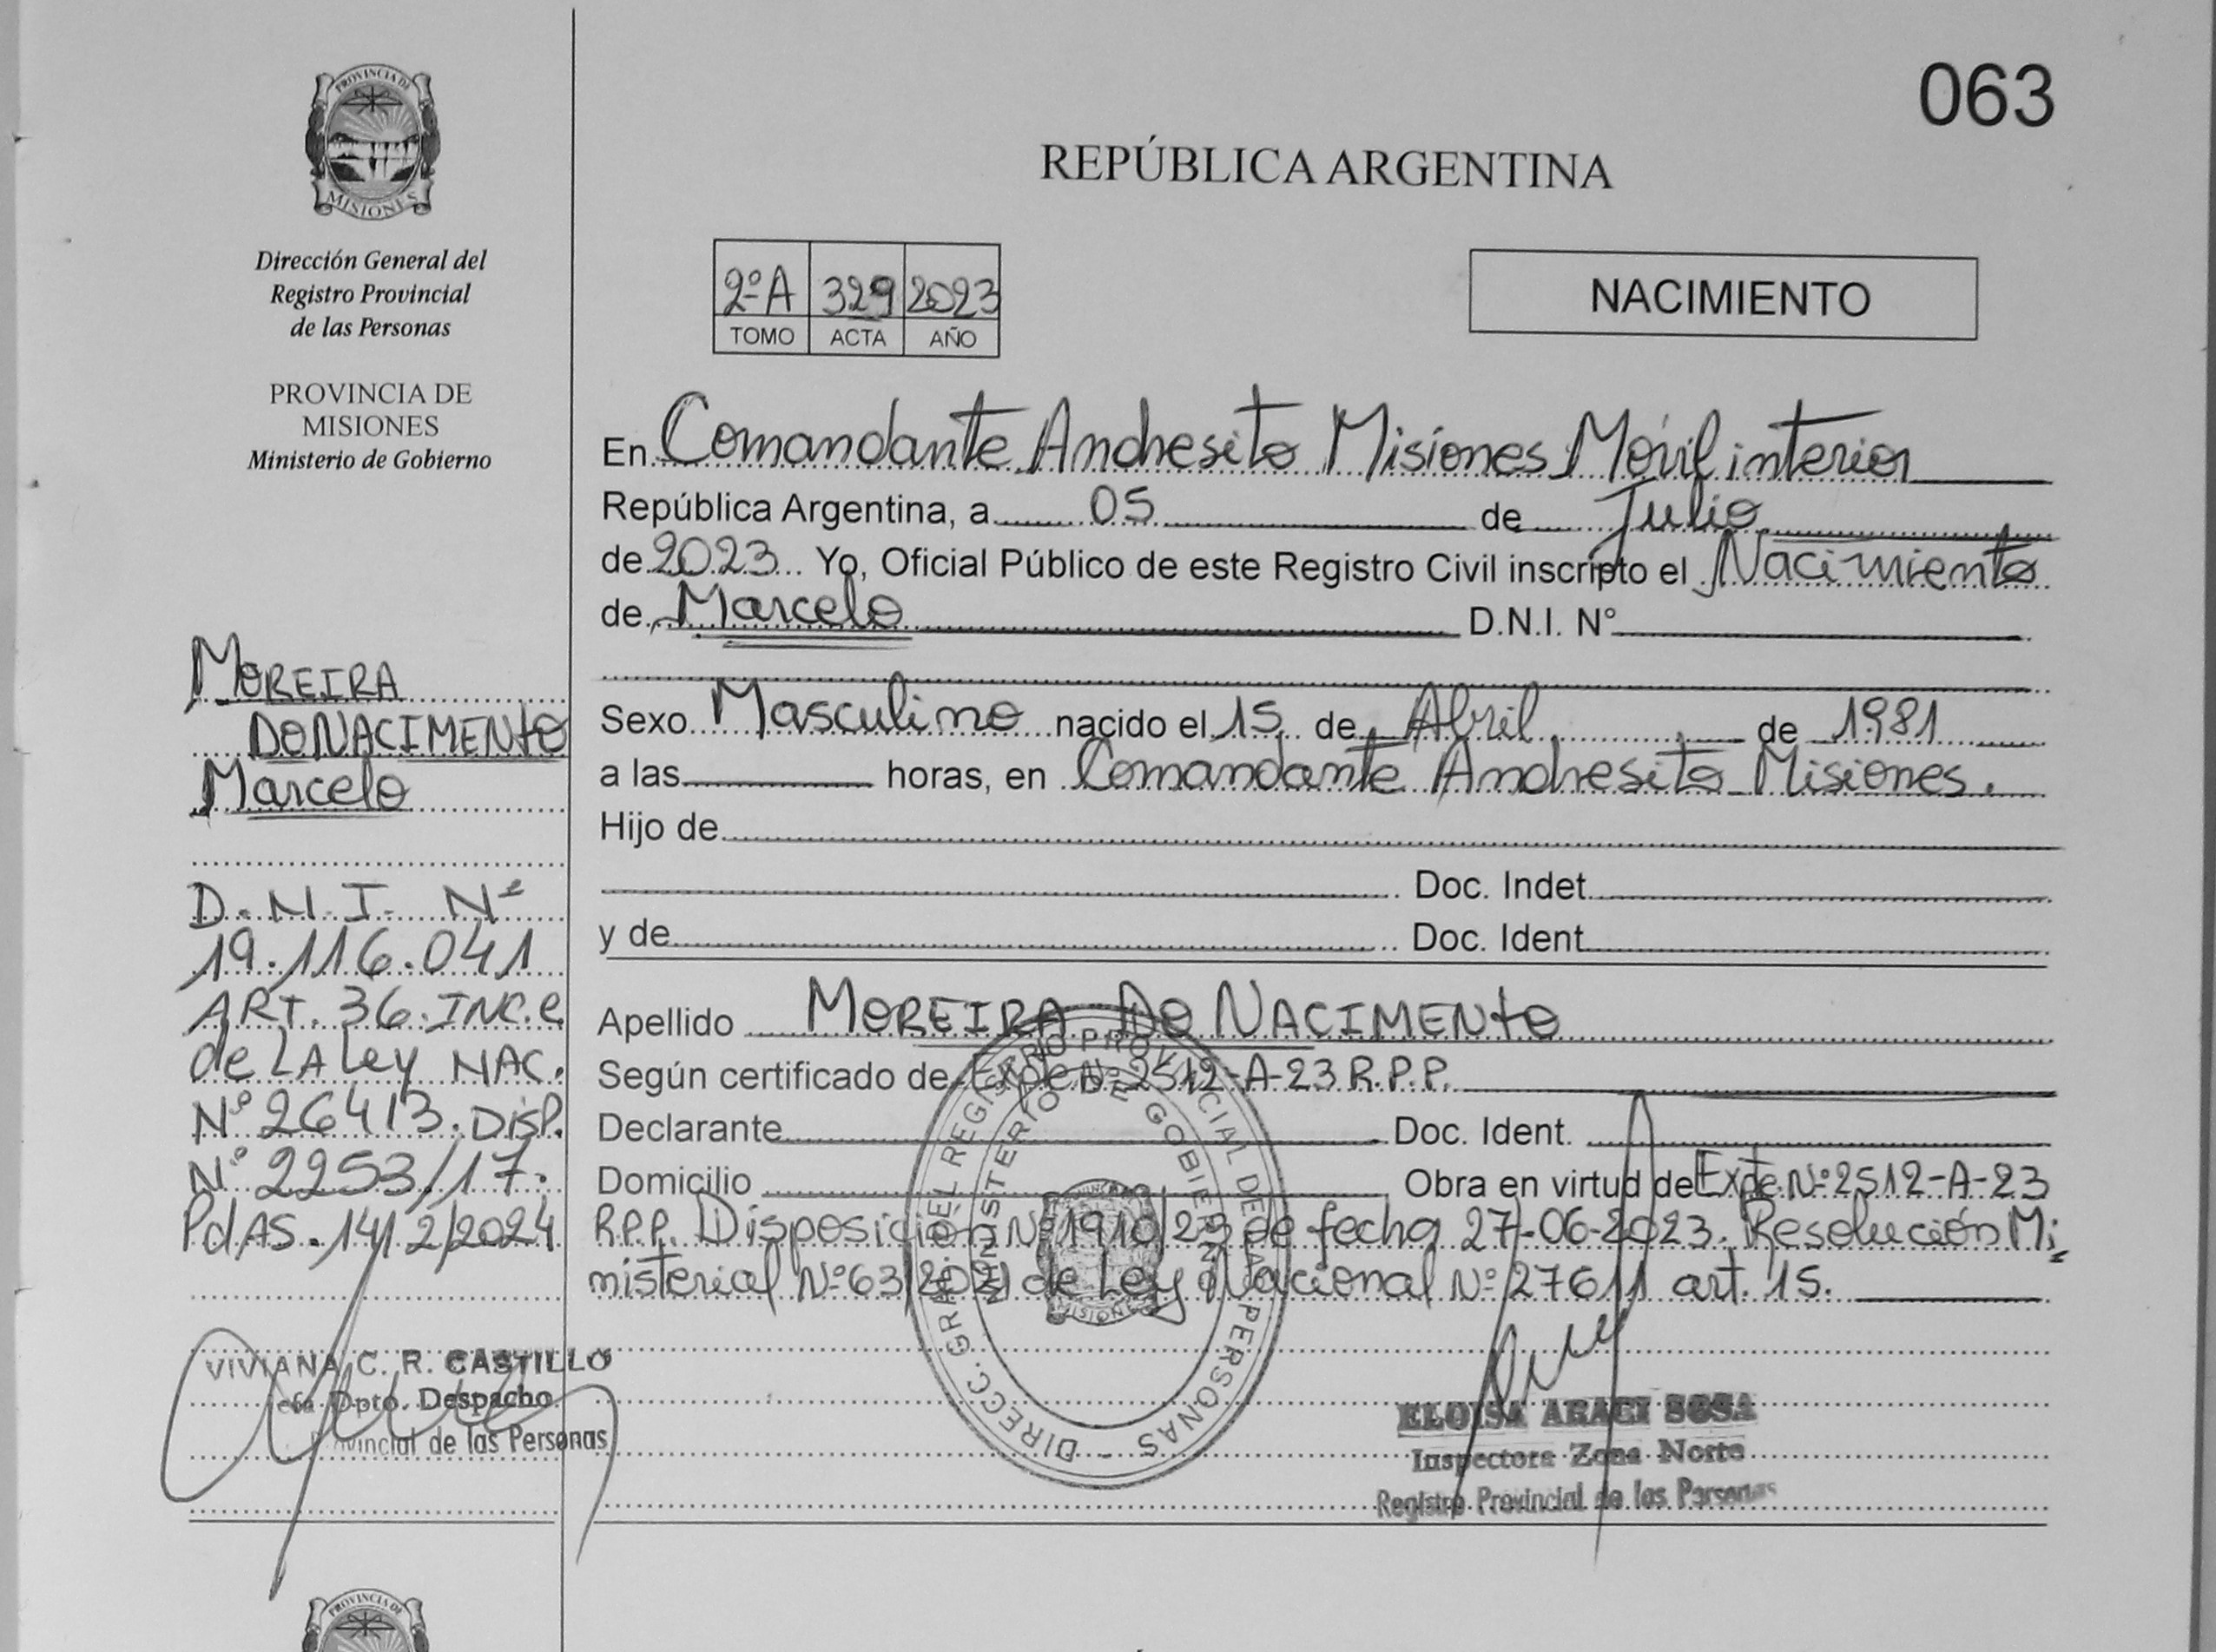 063
PROVINCIA DE
MISIONES
Dirección General del
Registro Provincial
de las Personas
PROVINCIA DE
MISIONES
Ministerio de Gobierno
MOREIRA
DO NACIMENTO
Marcelo
D.N.I. Nº
19.116.041
ART. 36. INC. C
de LA Ley NAC.
Nº 26413. DISP.
Nº 2253/17.
PdAS. 14/2/2024
VIVIANA C. R. CASTILLO
Dpto. Despacho
Provincial de las Personas
REPÚBLICA ARGENTINA
2ºA 329 2023
TOMO ACTA AÑO
NACIMIENTO
En Comandante Andresito Misiones Móvil interior
República Argentina, a 05 de Julio
de 2023 Yo, Oficial Público de este Registro Civil inscripto el Nacimiento
de Marcelo D.N.I. Nº
Sexo Masculino nacido el 15 de Abril de 1981
a las horas, en Comandante Andresito Misiones.
Hijo de
Doc. Indet
y de Doc. Ident
Apellido MOREIRA DO NACIMENTO
Según certificado de Expte Nº 2512-A-23 R.P.P.
Declarante Doc. Ident.
Domicilio Obra en virtud de Expte Nº 2512-A-23
R.P.P. Disposición Nº 1910/23 de fecha 27-06-2023. Resolución Mi
nisterial Nº 63/2021 de Ley Nacional Nº 27611 art. 15.
DIRECC. GRAL. DEL REGISTRO PROVINCIAL DE LAS PERSONAS -
MINISTERIO DE GOBIERNO
MISIONES
ELOISA ARACI SOSA
Inspectora Zona Norte
Registro Provincial de las Personas
PROVINCIA DE